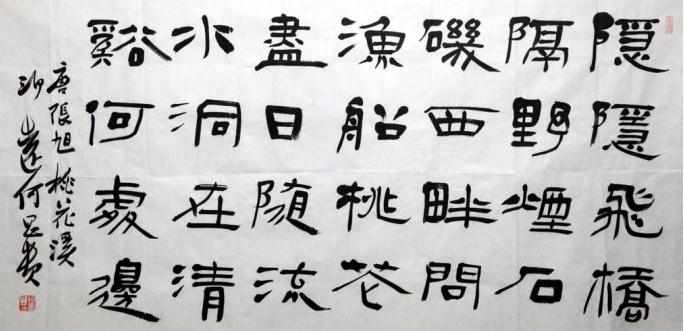 隱隱飛橋
隔野煙石
磯西畔問
漁船桃花
盡日隨流
水洞在清
谿何處邊
唐張旭桃花溪
何